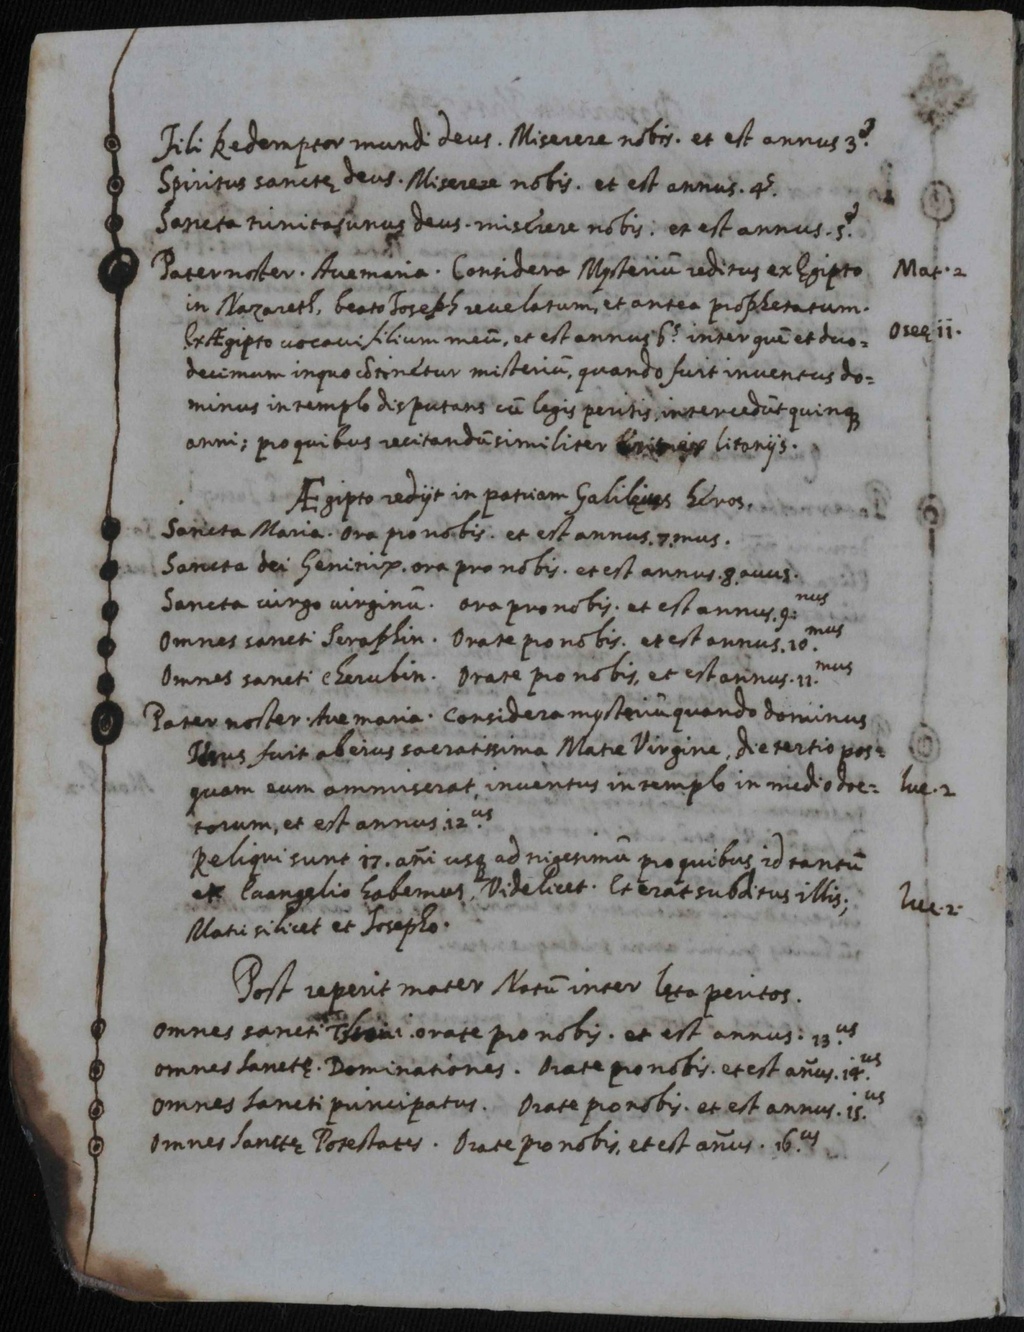 Fili Redemptor mundi deus. Miserere nobis. et est annus 3.us
Spiritus sanctę deus. Miserere nobis. et est annus. 4.us
Sancta trinitas unus deus. miserere nobis: et est annus. 5.us
Pater noster. Ave maria. Considera Mysteriū reditus ex Egipto
Mat. 2
in Nazareth, beato Joseph revelatum, et antea prophetatum.
Ex Ægipto vocavi filium meū, et est annus 6.s inter quē et duo=
Oseę ii.
decimum in quo cōtinētur misteriū, quando fuit inventus do=
minus in templo disputans cū legis peritis, intercedūt quinq
anni; pro quibus recitandū similiter litanijs.
Ægipto redijt in patriam Galileus heros.
Sancta Maria. Ora pro nobis. et est annus. 7.mus.
Sancta dei Genitrix. ora pro nobis. et est annus. 8.avus.
Sancta virgo virginū. ora pro nobis. et est annus. 9.nus
Omnes sancti Seraphin. Orate pro nobis. et est annus. 10.mus
Omnes sancti cherubin. Orate pro nobis, et est annus. 11.mus
Pater noster. Ave maria. Considera mysteriū quando dominus
Iesus fuit ab eius sacratissima Matre Virgine, die tertio pos=
quam eum ammiserat, inventus in templo in medio doc=
luc. 2
torum, et est annus. 12.us
Reliqui sunt 17. añi usq ad trigesimū pro quibus id tantū
ex Evangelio habemus, Videlicet. Et erat subditus illis;
luc. 2
Matri silicet et Josepho.
Post reperit mater Natū inter lęta peritos.
omnes sancti orate pro nobis. et est annus: 13.us
omnes sanctę. Dominationes. Orate pro nobis. et est añus. 14.us
omnes sancti principatus. Orate pro nobis. et est annus. 15.us
omnes sanctę Potestates. Orate pro nobis, et est añus. 16.us